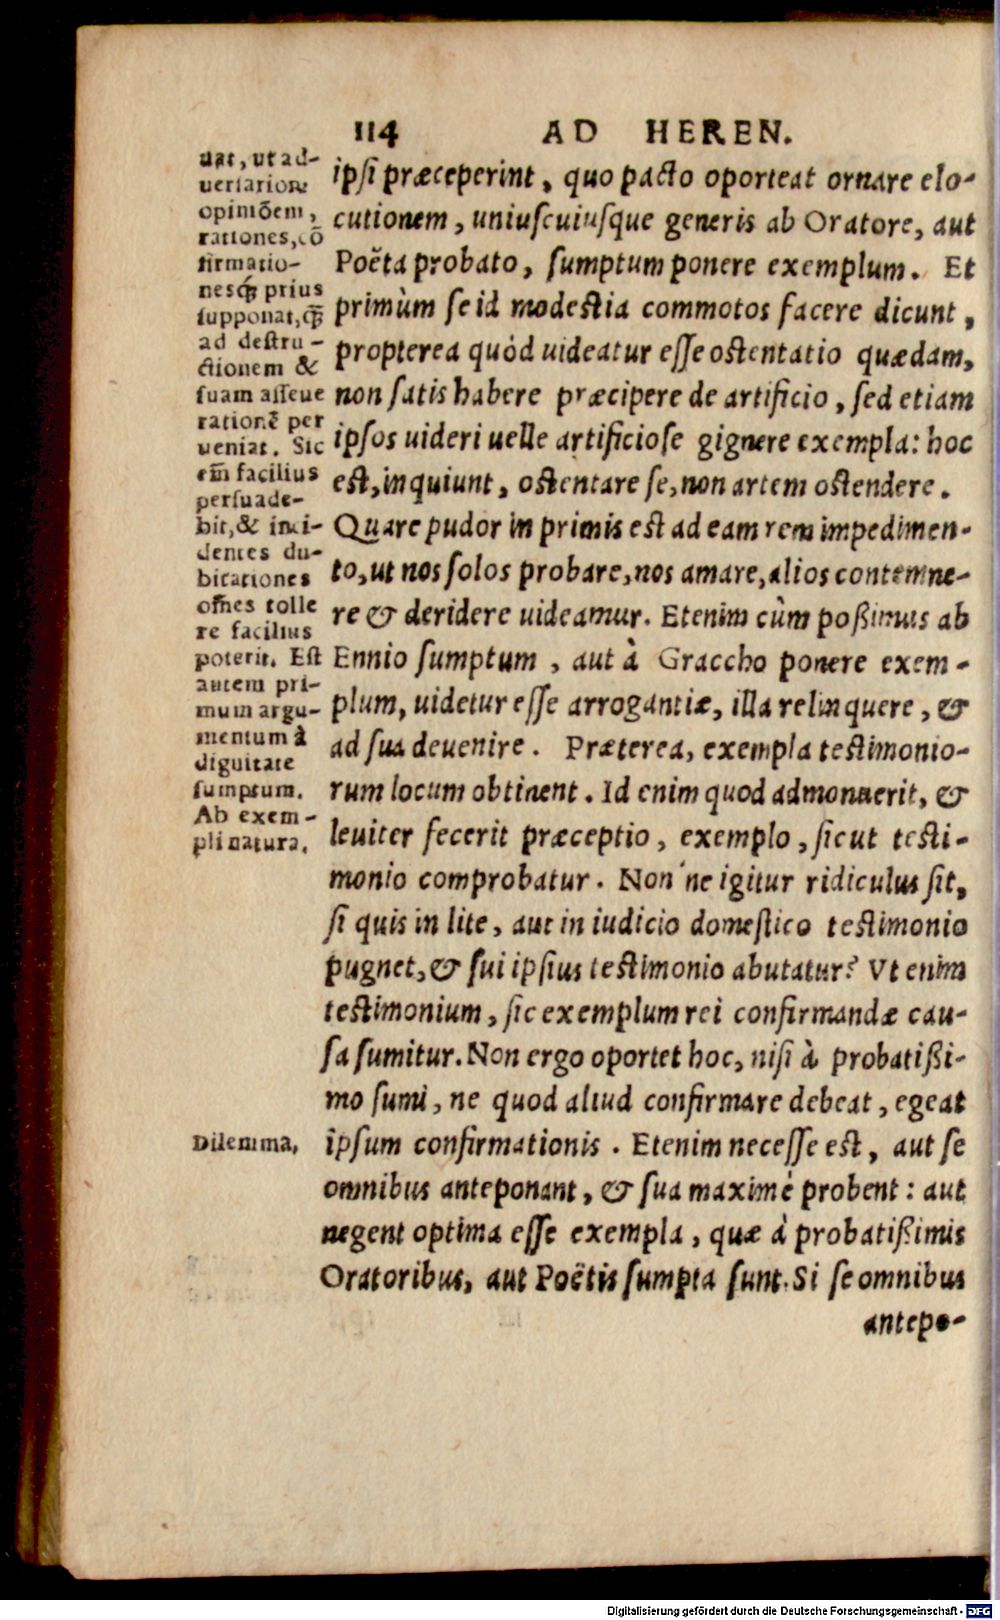 114 AD HEREN.
uat, ut ad-
uersariorũ
opiniõem,
rationes, cõ
firmatio-
nesq́ꝫ prius
supponat, q̃ꝫ
ad destru-
ctionem &
suam asseue
rationẽ per
ueniat. Sic
em̃ facilius
persuade-
bit, & inci-
dentes du-
bitationes
om̃es tolle
re facilius
poterit. Est
autem pri-
mum argu-
mentum à
dignitate
sumptum.
Ab exem-
pli natura.
ipsi præceperint, quo pacto oporteat ornare elo-
cutionem, uniuscuiusque generis ab Oratore, aut
Poëta probato, sumptum ponere exemplum. Et
primùm se id modestia commotos facere dicunt,
propterea quòd uideatur esse ostentatio quædam,
non satis habere præcipere de artificio, sed etiam
ipsos uideri uelle artificiose gignere exempla: hoc
est, inquiunt, ostentare se, non artem ostendere.
Quare pudor in primis est ad eam rem impedimen-
to, ut nos solos probare, nos amare, alios contemne-
re & deridere uideamur. Etenim cùm poßimus ab
Ennio sumptum, aut à Graccho ponere exem-
plum, uidetur esse arrogantiæ, illa relinquere, &
ad sua deuenire. Præterea, exempla testimonio-
rum locum obtinent. Id enim quod admonuerit, &
leuiter fecerit præceptio, exemplo, sicut testi-
monio comprobatur. Non'ne igitur ridiculus sit,
si quis in lite, aut in iudicio domestico testimonio
pugnet, & sui ipsius testimonio abutatur? Vt enim
testimonium, sic exemplum rei confirmandæ cau-
sa sumitur. Non ergo oportet hoc, nisi à probatißi-
mo sumi, ne quod aliud confirmare debeat, egeat
Dilemma,
ipsum confirmationis. Etenim necesse est, aut se
omnibus anteponant, & sua maximè probent: aut
negent optima esse exempla, quæ à probatißimis
Oratoribus, aut Poëtis sumpta sunt. Si se omnibus
antepo-
Digitalisierung gefördert durch die Deutsche Forschungsgemeinschaft - DFG